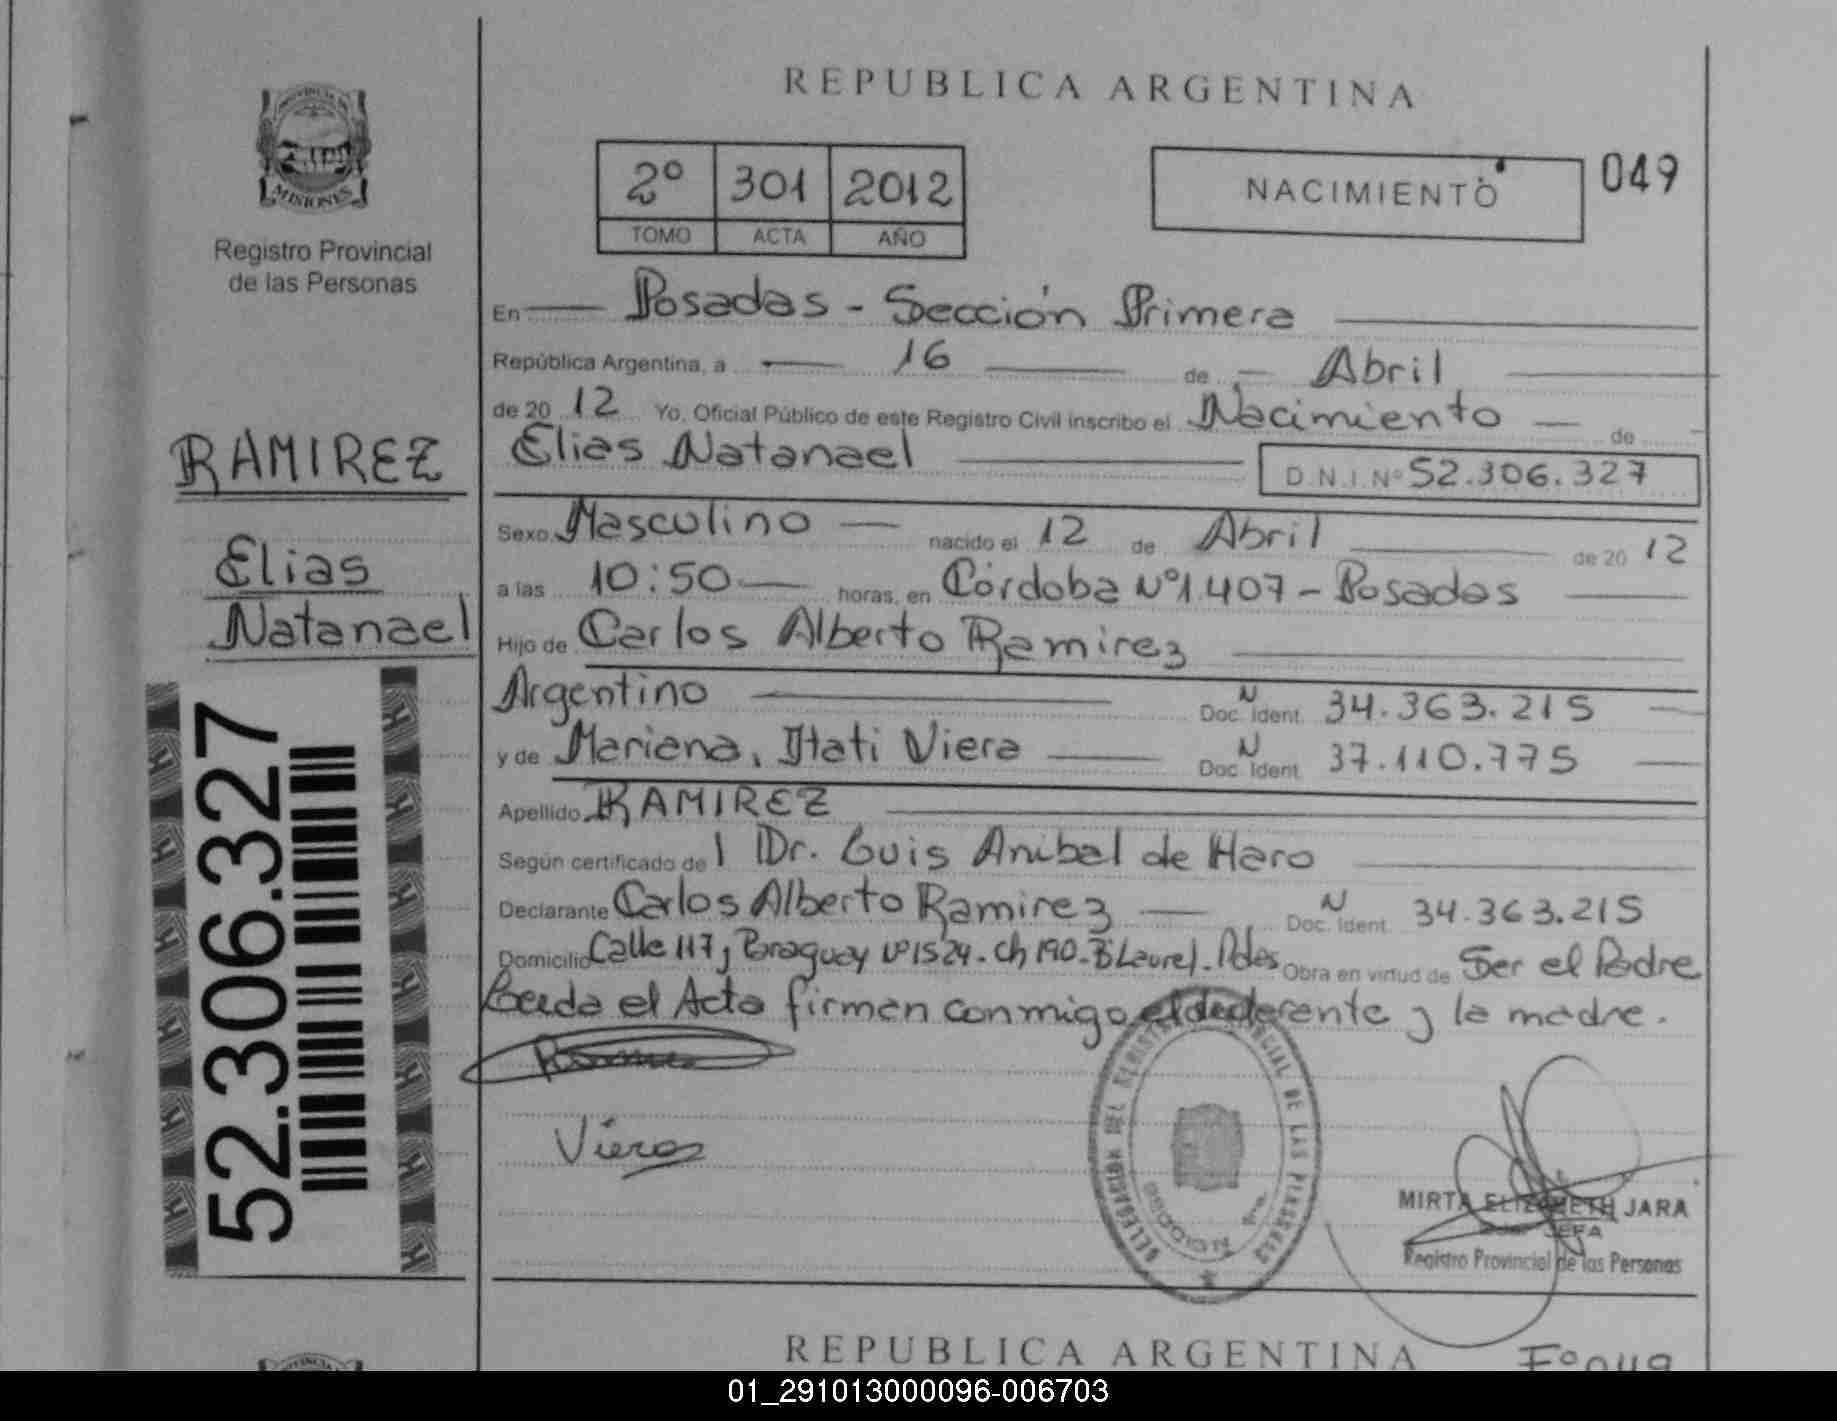 REPUBLICA ARGENTINA
PROVINCIA DE
MISIONES
Registro Provincial
de las Personas
2º 301 2012
TOMO ACTA AÑO
NACIMIENTO
049
En Posadas - Sección Primera
República Argentina, a 16 de Abril
de 20 12 Yo, Oficial Público de este Registro Civil inscribo el Nacimiento de
Elias Natanael D.N.I. Nº 52.306.327
Sexo Masculino nacido el 12 de Abril de 20 12
a las 10:50 horas, en Córdoba Nº 1.407 - Posadas
Hijo de Carlos Alberto Ramirez
Argentino N Doc. Ident. 34.363.215
y de Mariana, Itati Viera N Doc. Ident. 37.110.775
Apellido RAMIREZ
Según certificado de Dr. Luis Anibal de Haro
Declarante Carlos Alberto Ramirez N Doc. Ident. 34.363.215
Domicilio Calle 117 y Paraguay Nº 1524 - Ch 190 - Bº Laurel - Pdas Obra en virtud de Ser el Padre
Leida el Acta firman conmigo el declarante y la madre.
RAMIREZ
Elias
Natanael
52.306.327
Viera
DELEGACION DEL REGISTRO PROVINCIAL DE LAS PERSONAS
MIRTA ELIZABETH JARA
JEFA
Registro Provincial de las Personas
REPUBLICA ARGENTINA
Fº 049
01_291013000096-006703